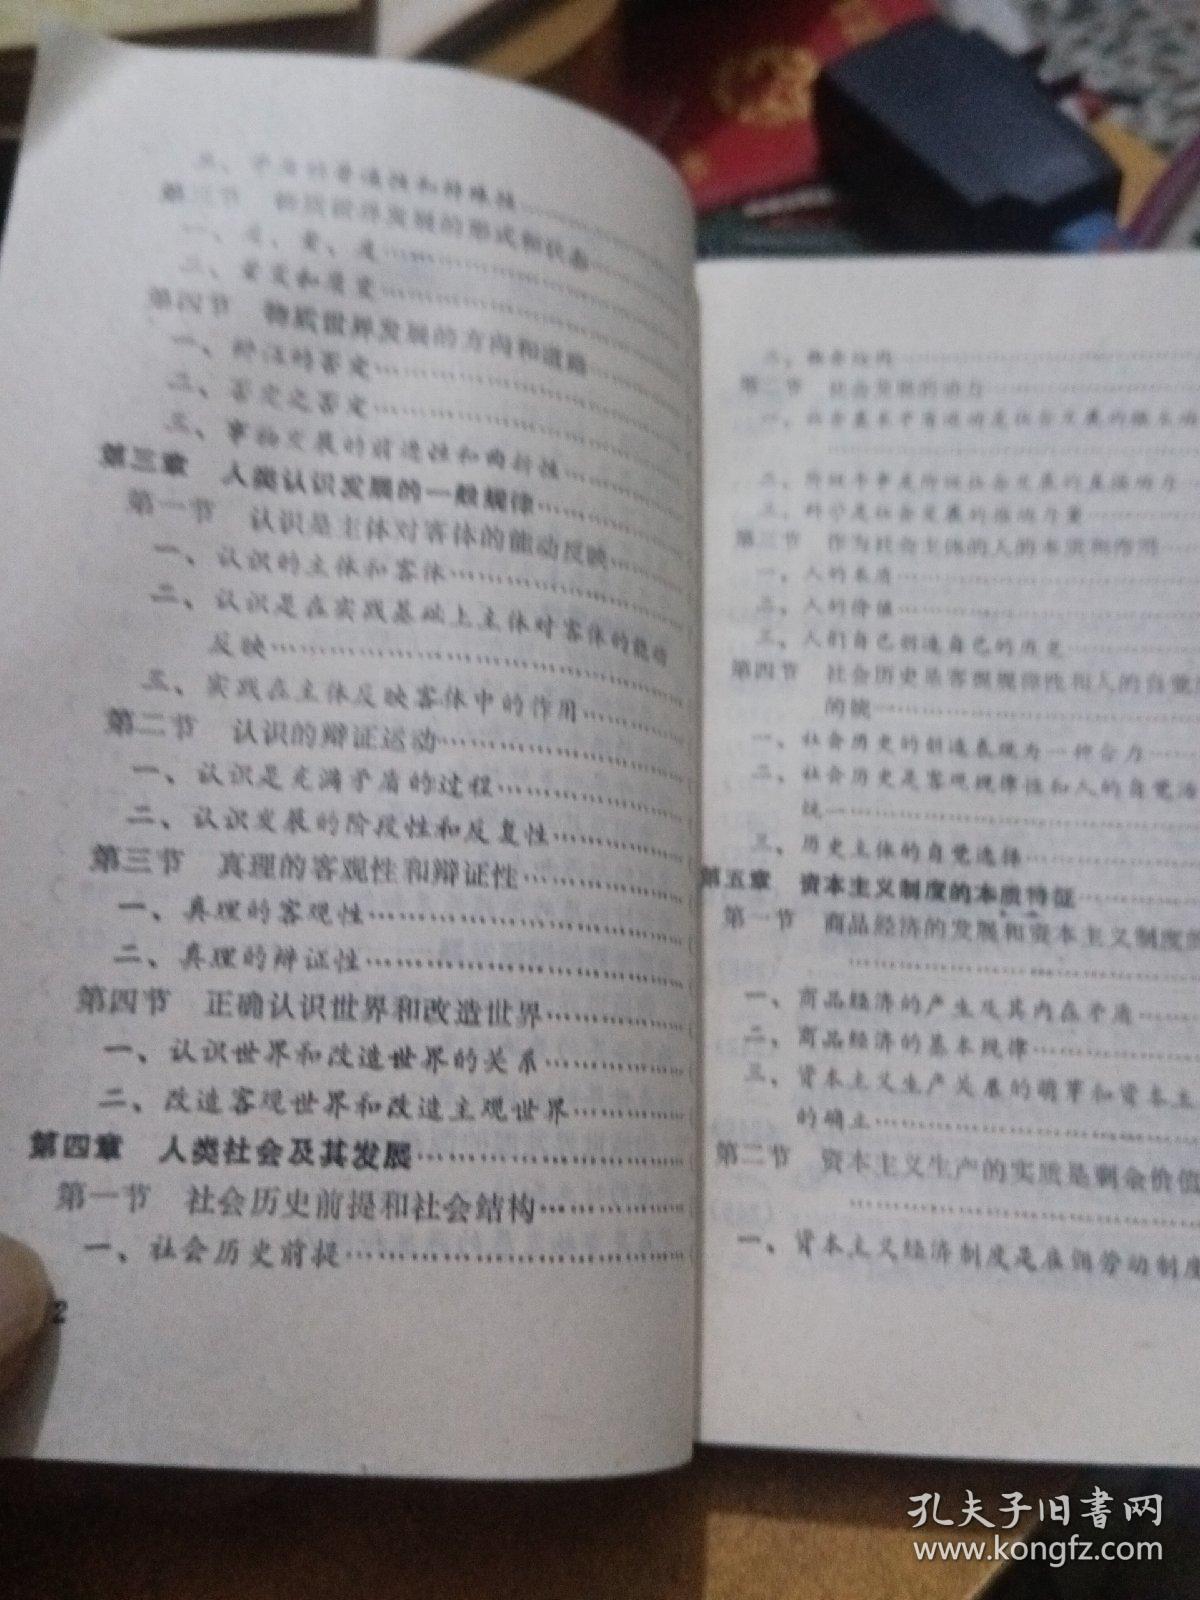 三、矛盾的普遍性和特殊性
第三节 物质世界发展的形式和状态
一、质、量、度
二、量变和质变
第四节 物质世界发展的方向和道路
一、辩证的否定
二、否定之否定
三、事物发展的前进性和曲折性
第三章 人类认识发展的一般规律
第一节 认识是主体对客体的能动反映
一、认识的主体和客体
二、认识是在实践基础上主体对客体的能动
反映
三、实践在主体反映客体中的作用
第二节 认识的辩证运动
一、认识是充满矛盾的过程
二、认识发展的阶段性和反复性
第三节 真理的客观性和辩证性
一、真理的客观性
二、真理的辩证性
第四节 正确认识世界和改造世界
一、认识世界和改造世界的关系
二、改造客观世界和改造主观世界
第四章 人类社会及其发展
第一节 社会历史前提和社会结构
一、社会历史前提
2
二、社会结构
第二节 社会发展的动力
一、社会基本矛盾运动是社会发展的根本动
二、阶级斗争是阶级社会发展的直接动力
三、科学是社会发展的推动力量
第三节 作为社会主体的人的本质和作用
一、人的本质
二、人的价值
三、人们自己创造自己的历史
第四节 社会历史是客观规律性和人的自觉
的统一
一、社会历史的创造表现为一种合力
二、社会历史是客观规律性和人的自觉活
统一
三、历史主体的自觉选择
第五章 资本主义制度的本质特征
第一节 商品经济的发展和资本主义制度的
一、商品经济的产生及其内在矛盾
二、商品经济的基本规律
三、资本主义生产关系的萌芽和资本主
的确立
第二节 资本主义生产的实质是剩余价值
一、资本主义经济制度是雇佣劳动制度
孔夫子旧书网
www.kongfz.com